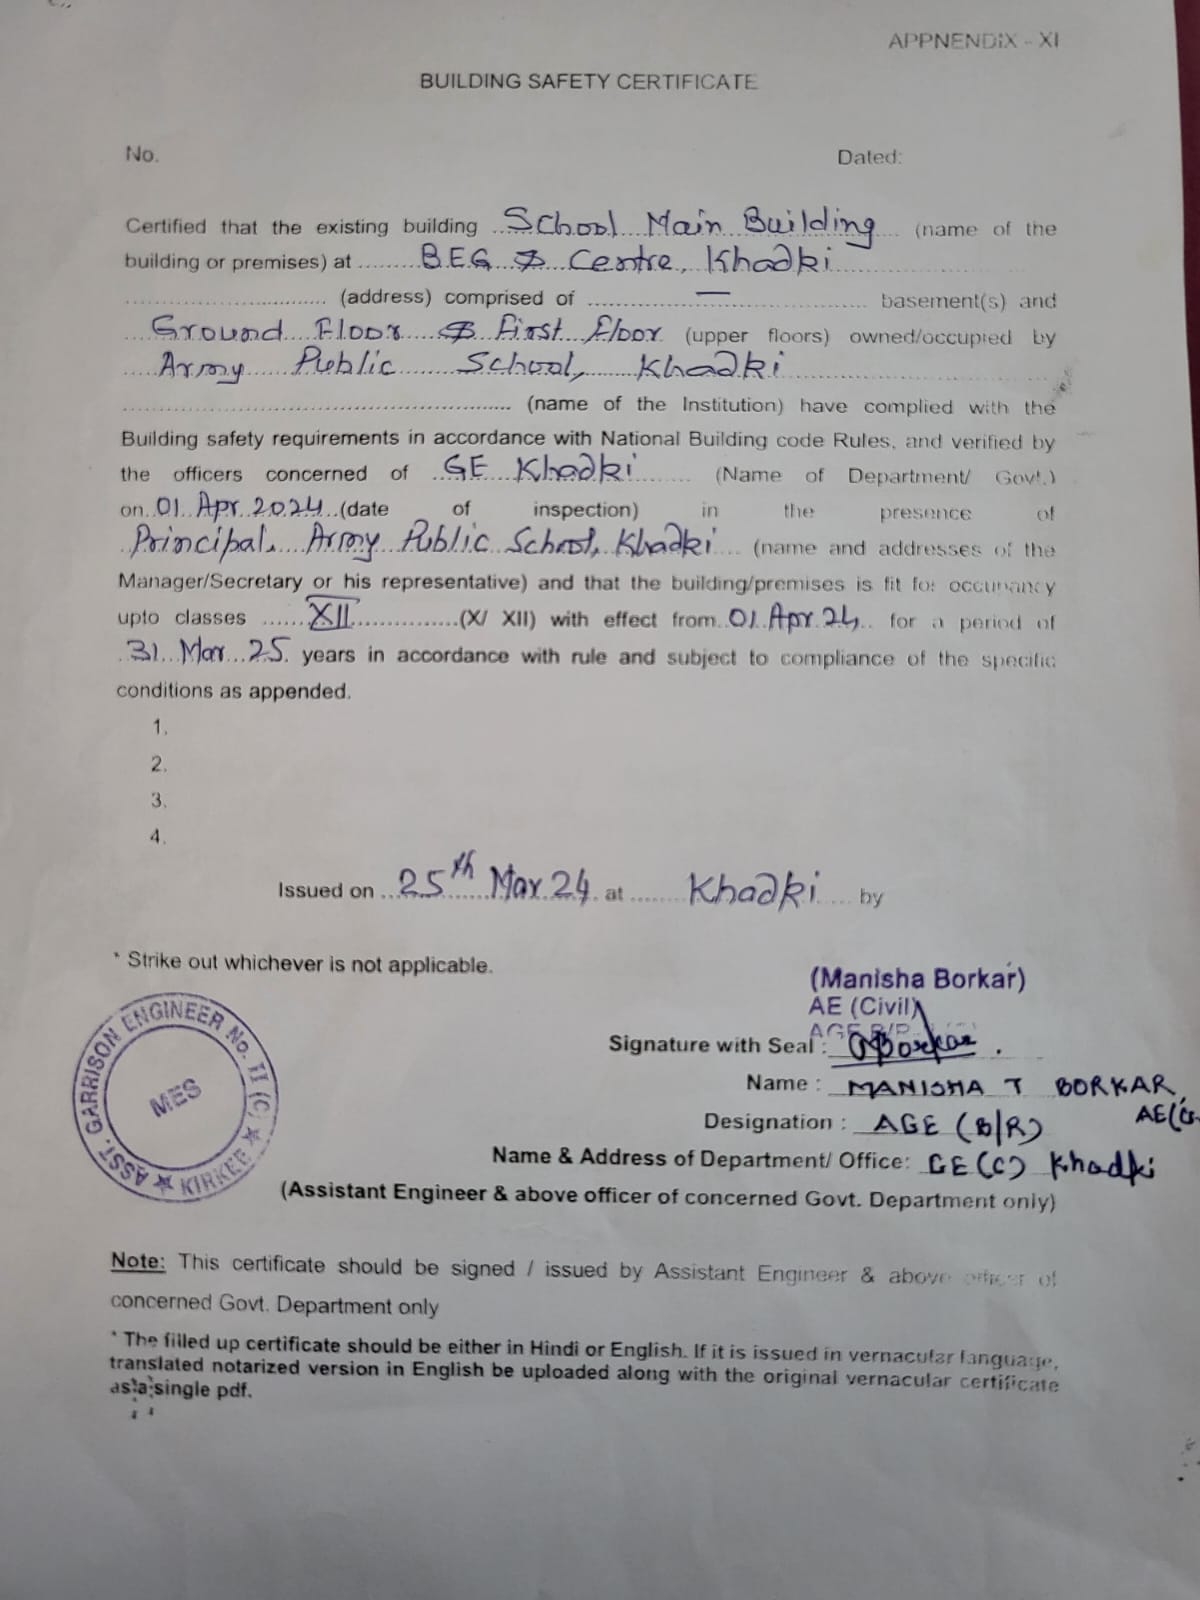 APPNENDIX - XI
BUILDING SAFETY CERTIFICATE
No. Dated:
Certified that the existing building ..School Main Building.... (name of the
building or premises) at .........BEG & Centre, Khadki..............
............................. (address) comprised of ............—............... basement(s) and
..Ground Floor & First Floor. (upper floors) owned/occupied by
.....Army Public School, Khadki..............
...................................................... (name of the Institution) have complied with the
Building safety requirements in accordance with National Building code Rules, and verified by
the officers concerned of ..GE Khadki........ (Name of Department/ Govt.)
on..01 Apr. 2024..(date of inspection) in the presence of
.Principal, Army Public School, Khadki.... (name and addresses of the
Manager/Secretary or his representative) and that the building/premises is fit for occupancy
upto classes ......XII..............(X/ XII) with effect from..01 Apr.24.. for a period of
.31 Mar 25. years in accordance with rule and subject to compliance of the specific
conditions as appended.
1.
2.
3.
4.
Issued on ..25th Mar 24. at ........Khadki..... by
* Strike out whichever is not applicable.
(Manisha Borkar)
AE (Civil)
AGE B/R
Signature with Seal : Borkar .
Name : MANISHA T BORKAR,
AE(
Designation : AGE (B/R)
Name & Address of Department/ Office: GE (C) Khadki
(Assistant Engineer & above officer of concerned Govt. Department only)
ASST. GARRISON ENGINEER No. II (C) ★ KIRKEE ★
MES
Note: This certificate should be signed / issued by Assistant Engineer & above officer of
concerned Govt. Department only
* The filled up certificate should be either in Hindi or English. If it is issued in vernacular language,
translated notarized version in English be uploaded along with the original vernacular certificate
as a single pdf.